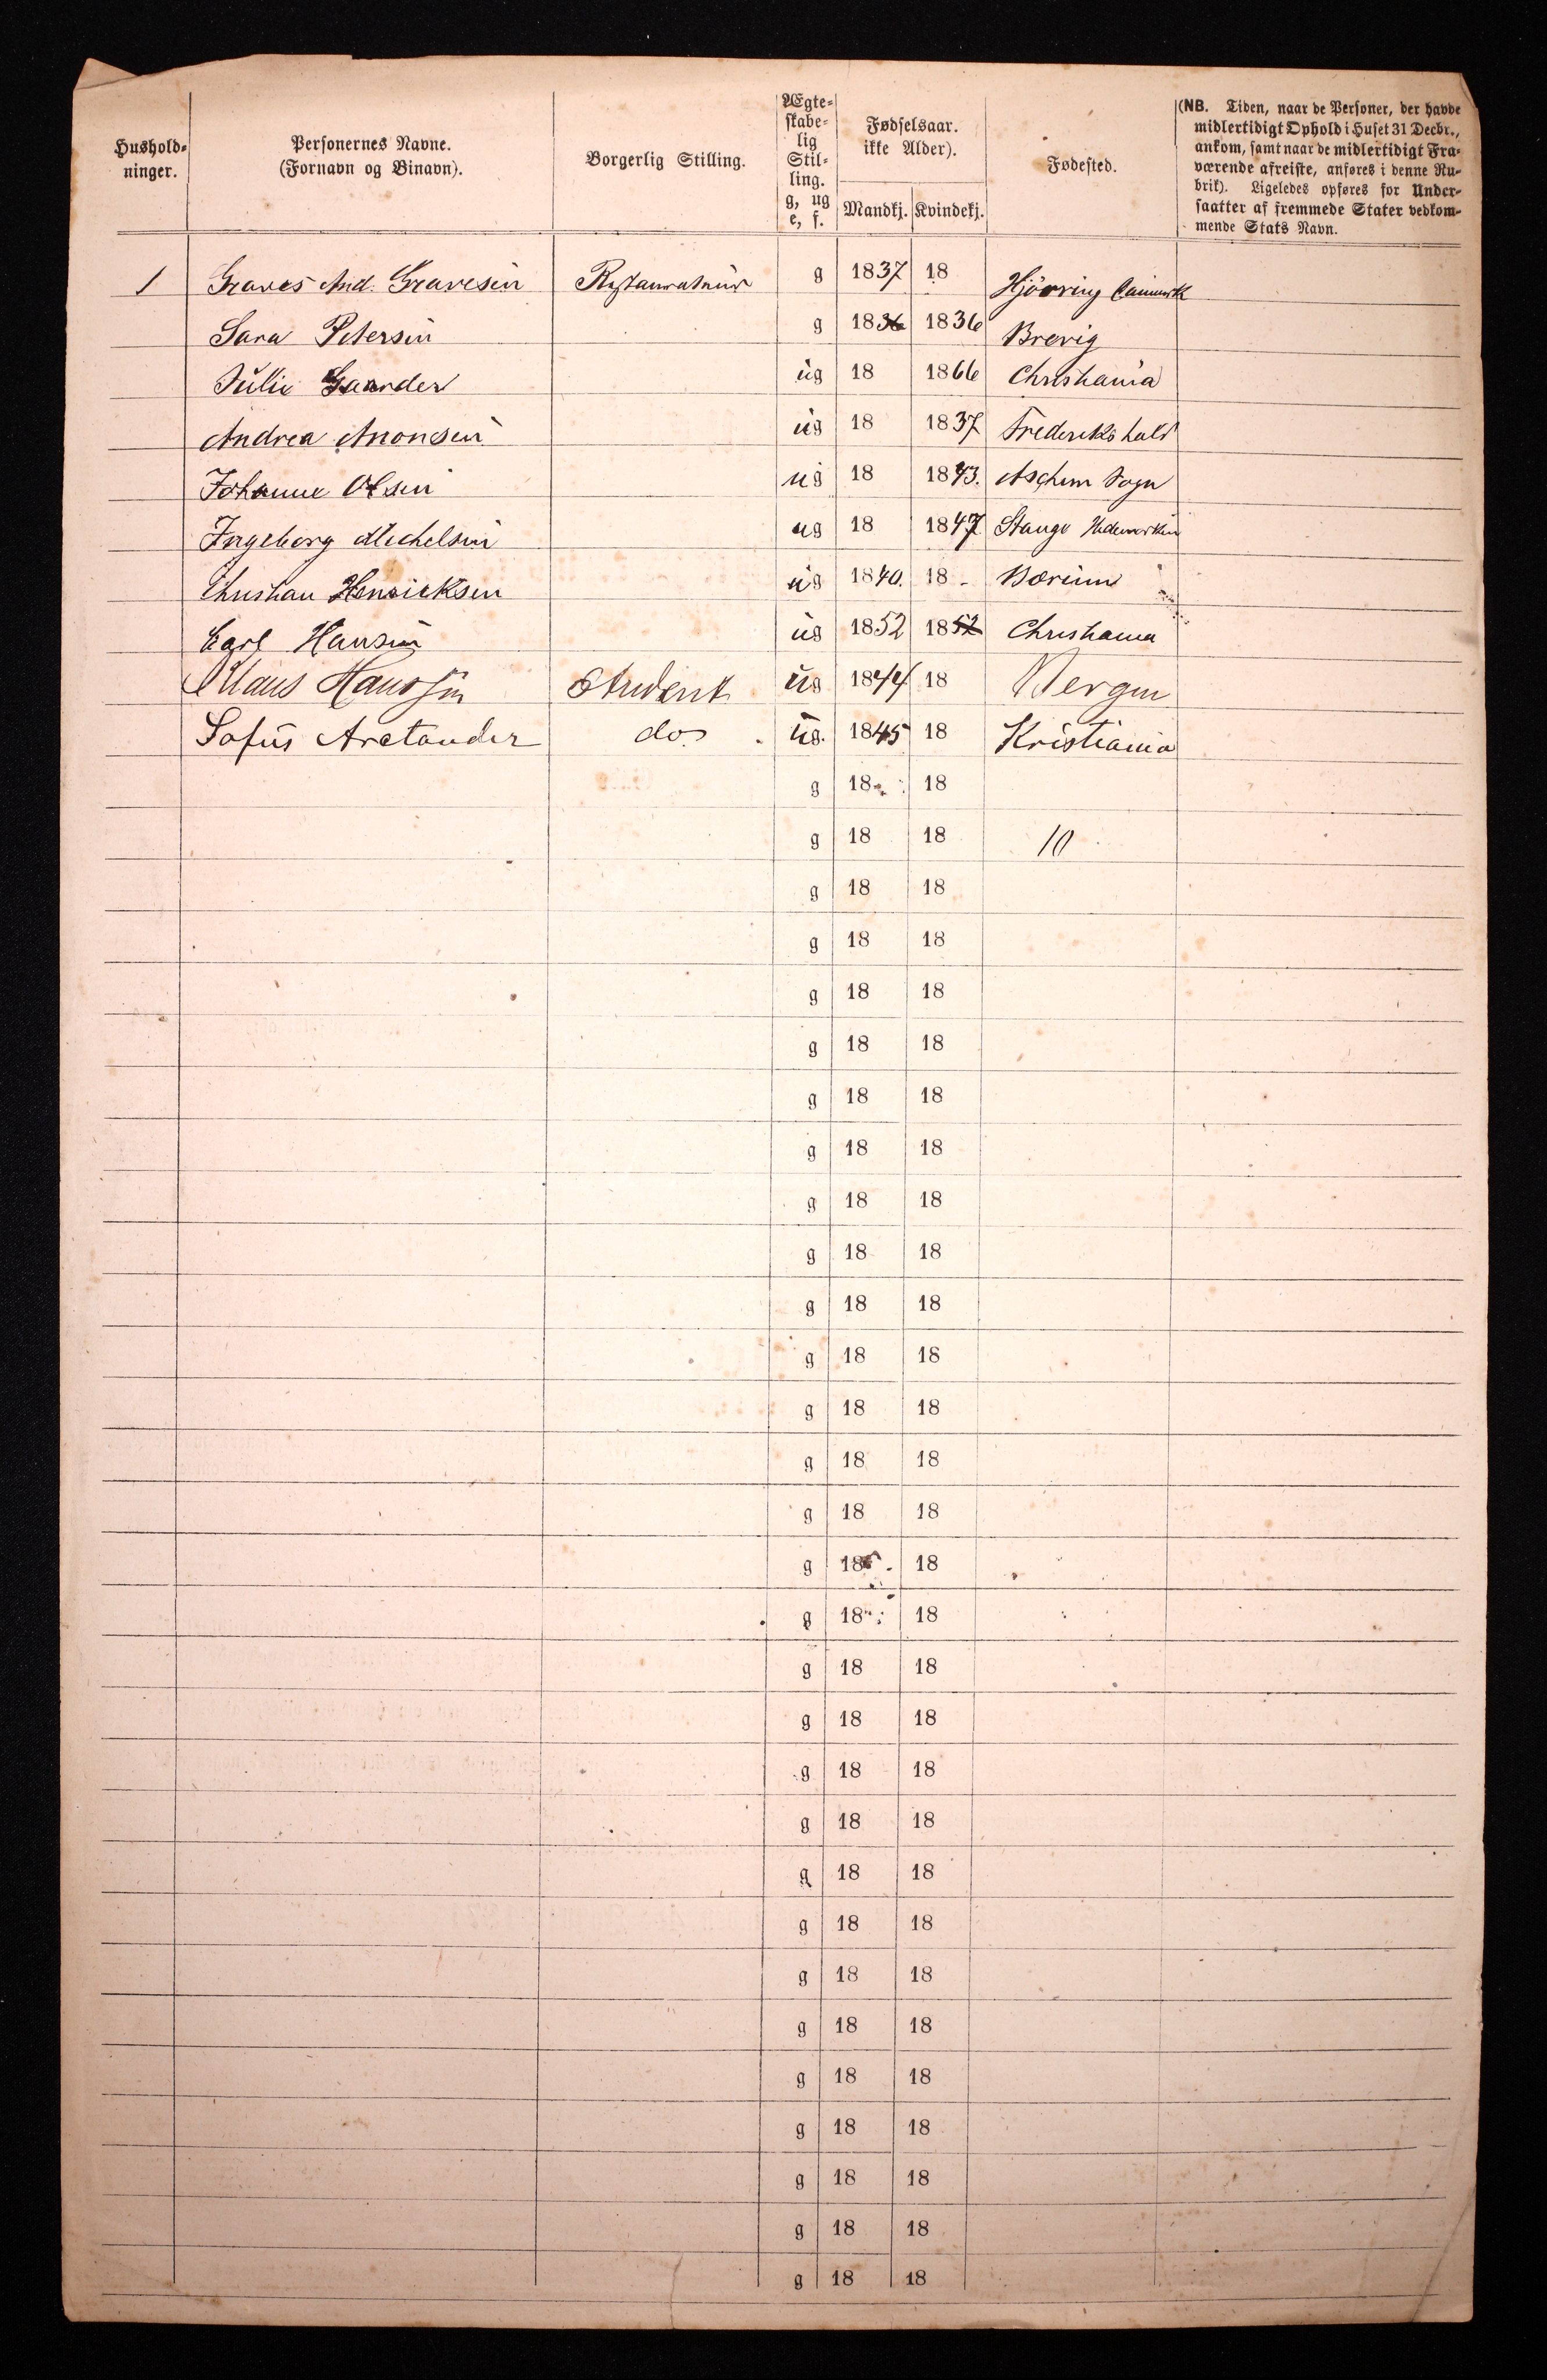 Hushold-
ninger.
Personernes Navne.
(Fornavn og Binavn).
Borgerlig Stilling.
Ægte-
skabe-
lig
Stil-
ling.
g, ug
e, f.
Fødselsaar.
ikke Alder).
Mandkj. Kvindekj.
Fødested.
(NB. Tiden, naar de Personer, der havde
midlertidigt Ophold i Huset 31 Decbr.,
ankom, samt naar de midlertidigt Fra-
værende afreiste, anføres i denne Ru-
brik). Ligeledes opføres for Under-
saatter af fremmede Stater vedkom-
mende Stats Navn.
1 Graves And. Gravesen Restaurateur g 1837 18 Hjörring
Sara Petersen g 1836 1836 Brevig
Julie Gaarder ug 18 1866 Christiania
Andrea Aronesen ug 18 1837 Frederikshald
Johanne Olsen ug 18 1843. Sogn
Ingeborg Michelsen ug 18 1847 Stange Hedemarken
Christian Henricksen ug 1840. 18 - Bærum
Carl Hansen ug 1852 1852 Christiania
Klaus Hanssen Student ug 1844 18 Bergen
Sofus Arctander do. ug. 1845 18 Kristiania
g 18 18
g 18 18 10
g 18 18
g 18 18
g 18 18
g 18 18
g 18 18
g 18 18
g 18 18
g 18 18
g 18 18
g 18 18
g 18 18
g 18 18
g 18 18
g 18 18
g 18 18
g 18 18
g 18 18
g 18 18
g 18 18
g 18 18
g 18 18
g 18 18
g 18 18
g 18 18
g 18 18
g 18 18
g 18 18
g 18 18